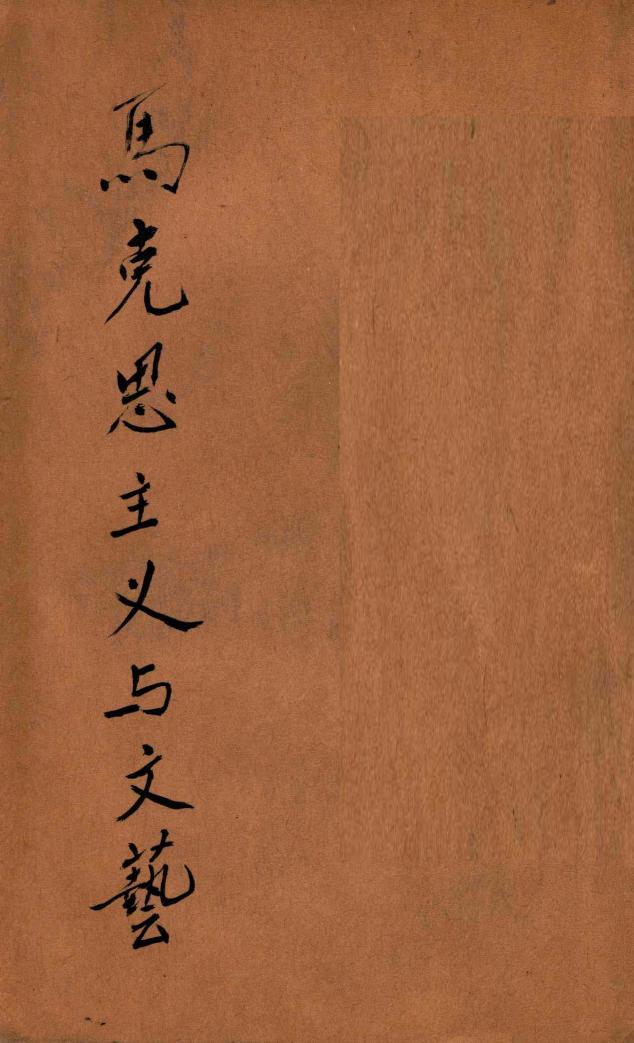 馬克思主义与文藝